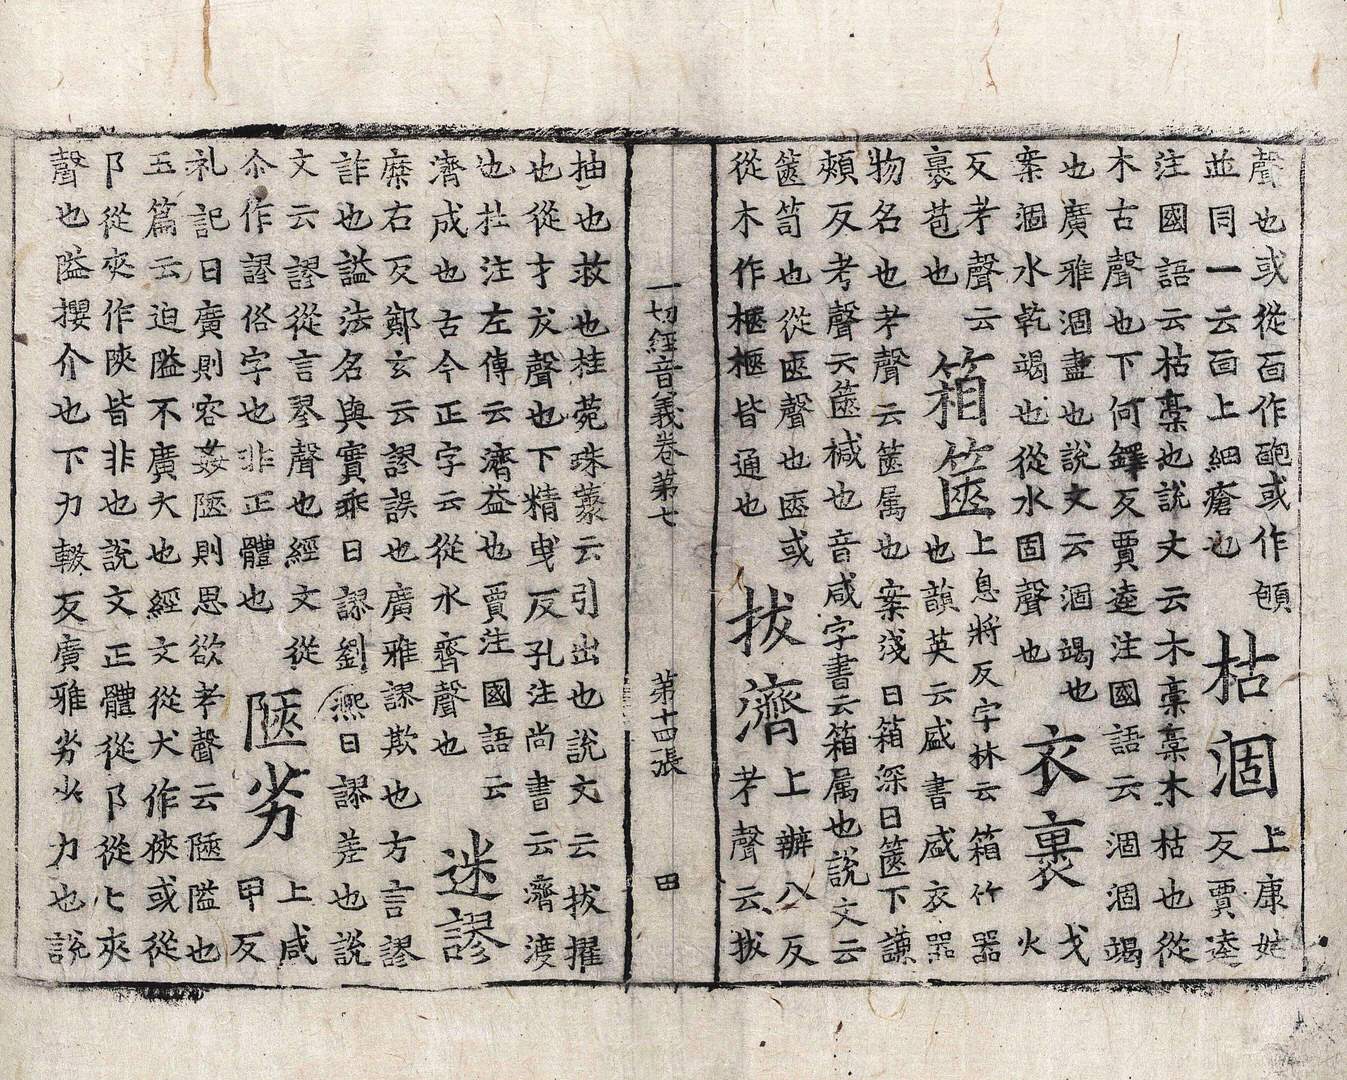 聲也或從面作皰或作䩝 枯涸 上康姑
並同一云面上細瘡也 反賈逵
注國語云枯槀也說文云木槀槀木枯也從
木古聲也下何鐸反賈逵注國語云涸涸竭
也廣雅涸盡也說文云涸竭也 衣裹 戈
案涸水乾竭也從水固聲也 火
反考聲云 箱篋 上息將反字林云箱竹器
裹苞也 也韻英云盛書盛衣器
物名也考聲云篋属也案淺曰箱深曰篋下謙
頰反考聲云篋椷也音咸字書云箱属也說文云
篋笥也從匧聲也匧或 拔濟 上辦八反
從木作㮌㮌皆通也 考聲云拔
一切經音義卷第七 第十四張 田
抽也救也桂菀珠藂云引出也說文云拔擢
也從才犮聲也下精曳反孔注尚書云濟渡
也杜注左傳云濟益也賈注國語云 迷謬
濟成也古今正字云從水齊聲也
糜右反鄭玄云謬誤也廣雅謬欺也方言謬
詐也謚法名與實乖曰謬劉熙曰謬差也說
文云謬從言翏聲也經文從 陿劣 上咸
尒作謬俗字也非正體也 甲反
礼記曰廣則容姦陿則思欲考聲云陿隘也
玉篇云迫隘不廣大也經文從犬作狹或從
阝從夾作陝皆非也說文正體從阝從匕夾
聲也隘㩲介也下力輟反廣雅劣少力也說